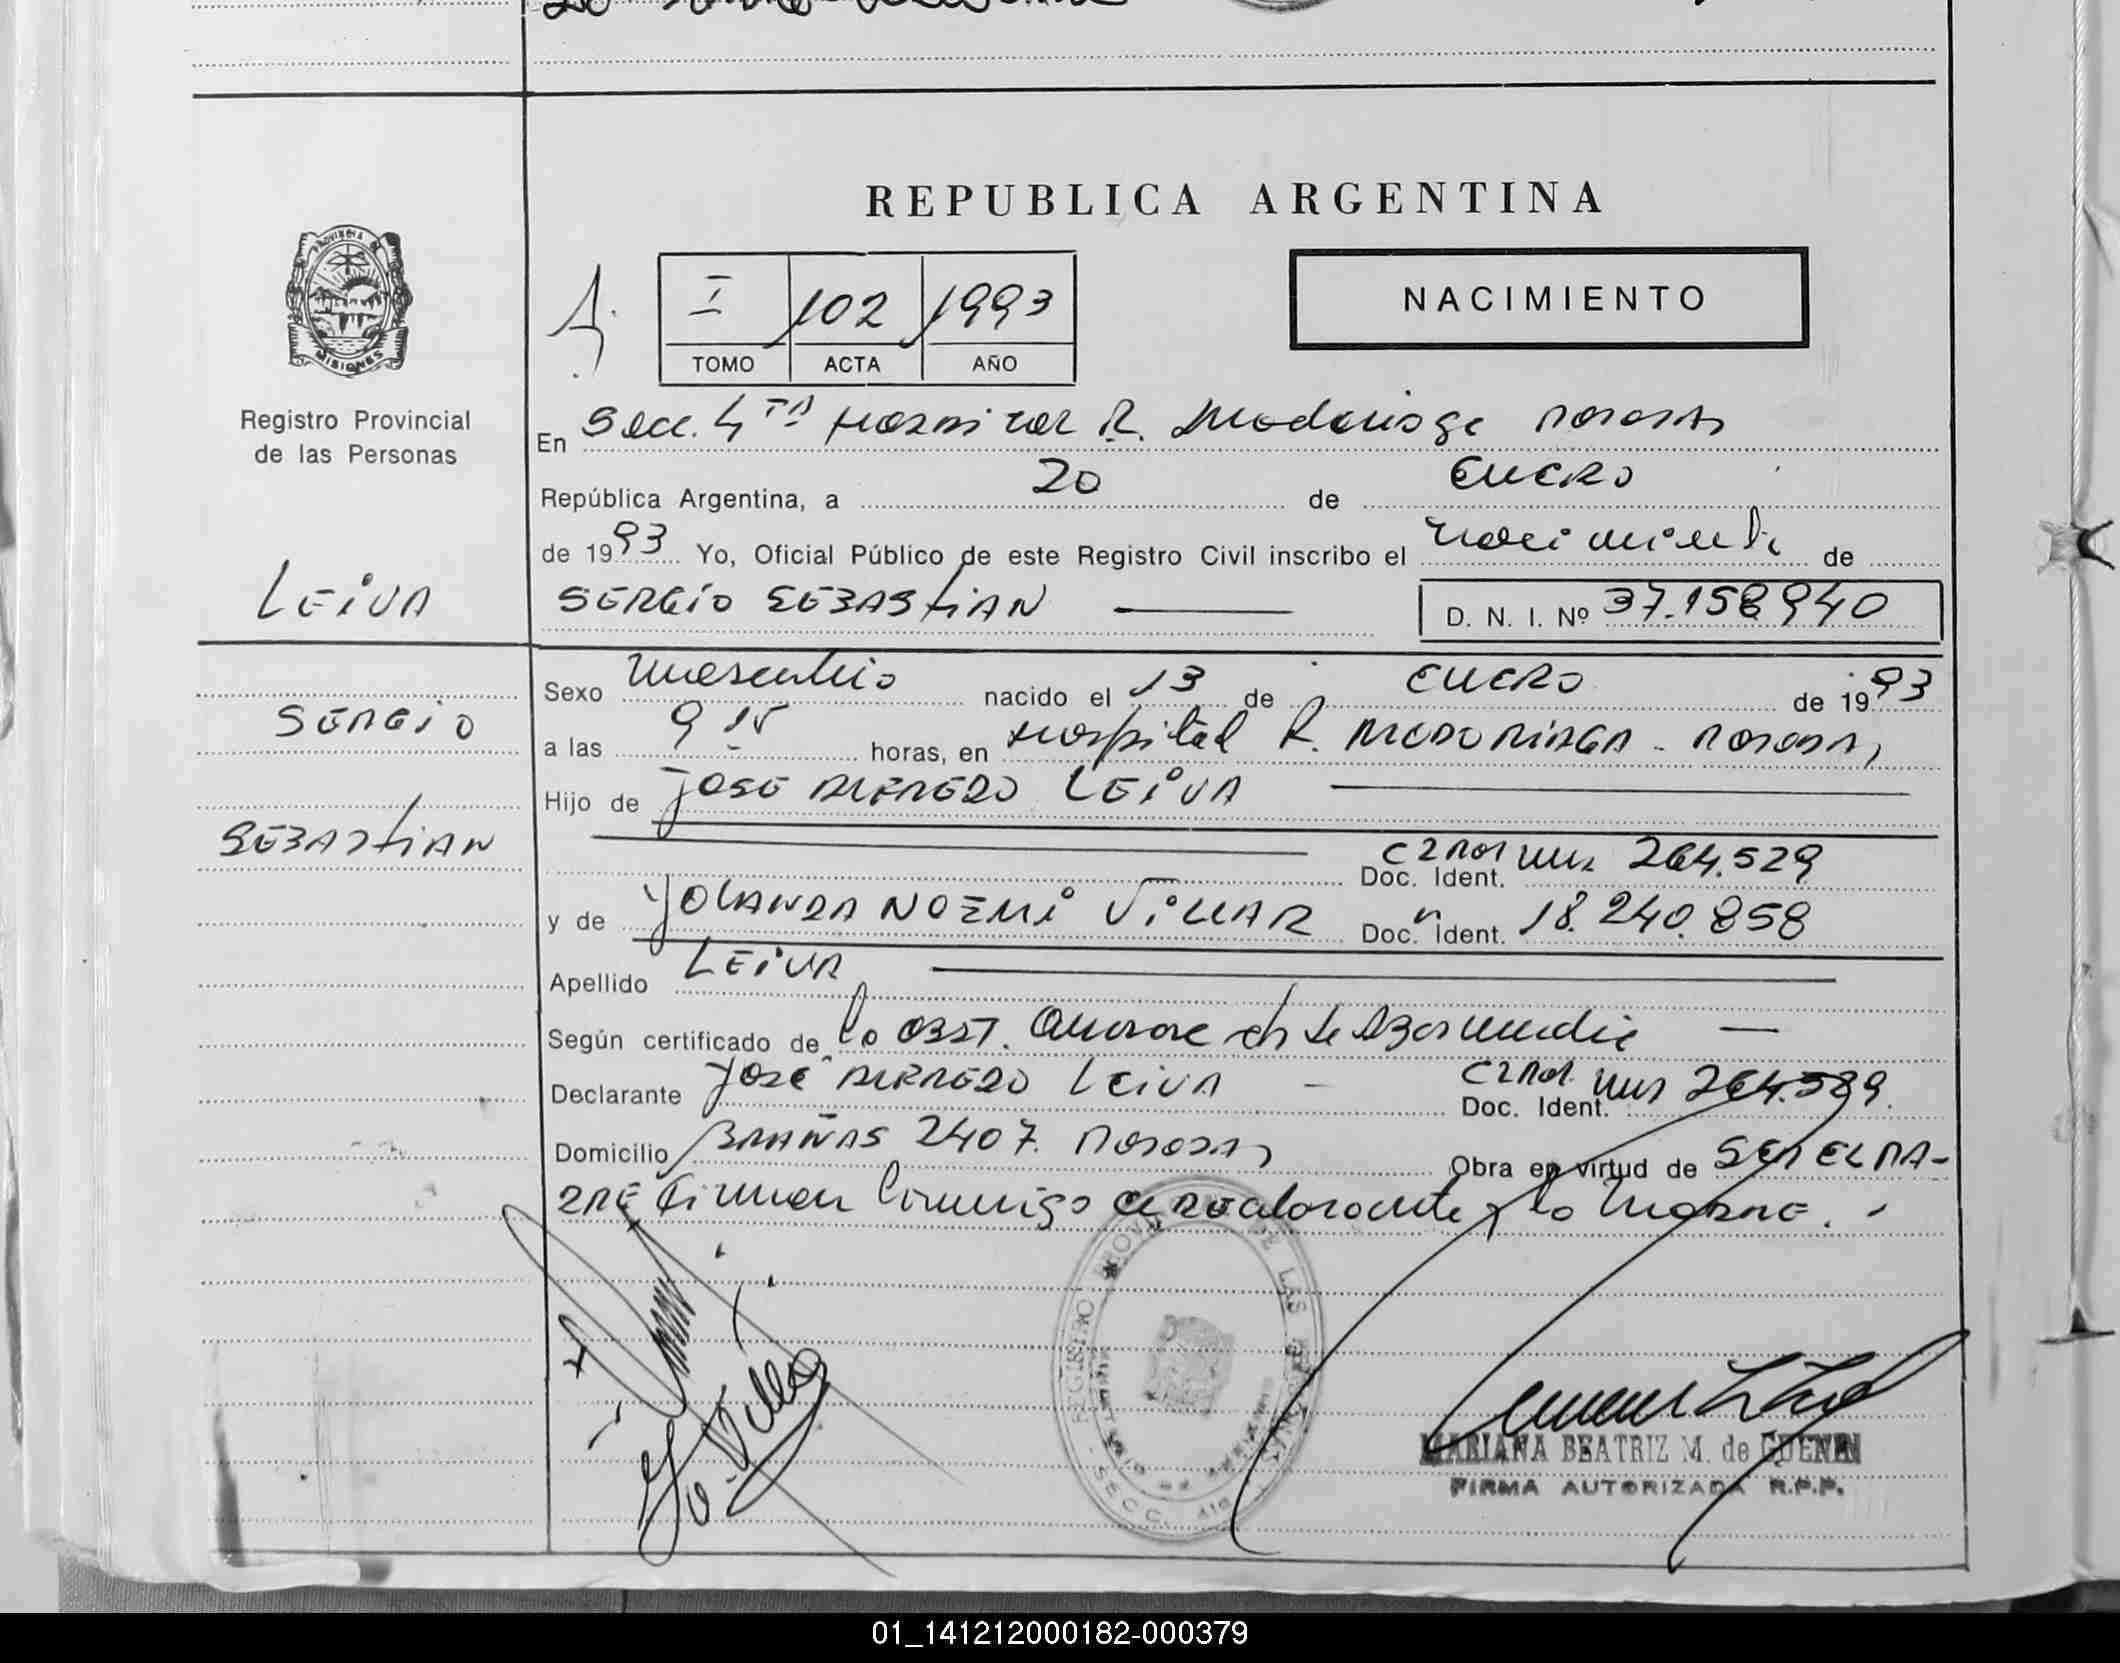 REPUBLICA ARGENTINA
PROVINCIA DE
MISIONES
Registro Provincial
de las Personas
I 102 1993
TOMO ACTA AÑO
NACIMIENTO
En Secc. 4TA Hospital R. Madariaga Posadas
República Argentina, a 20 de Enero
de 1993 Yo, Oficial Público de este Registro Civil inscribo el nacimiento de
LEIVA
SERGIO SEBASTIAN
D. N. I. Nº 37.158940
Sexo masculino nacido el 13 de Enero de 1993
SERGIO
a las 9 15 horas, en Hospital R. MADARIAGA - POSADAS
Hijo de JOSE ALFREDO LEIVA
SEBASTIAN
Doc. Ident. 264.529
y de YOLANDA NOEMI VILLAR Doc. Ident. 18.240.858
Apellido LEIVA
Según certificado de la OBST.
Declarante JOSÉ ALFREDO LEIVA Doc. Ident. 264.589.
Domicilio BRAÑAS 2407. POSADAS Obra en virtud de SER EL PA-
DRE Firman Conmigo el Declarante y la Madre.
Yo. Villa
REGISTRO PROVINCIAL DE LAS PERSONAS
SECC. 4ta
MARIANA BEATRIZ M. de
FIRMA AUTORIZADA R.P.P.
01_141212000182-000379